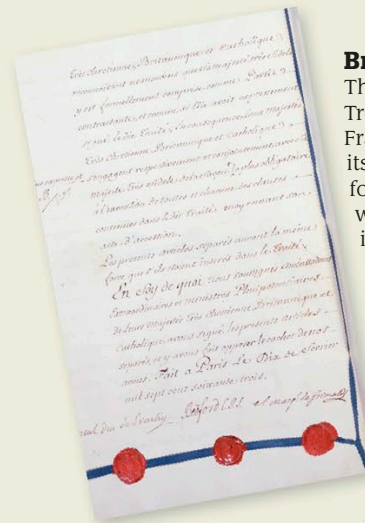 Très Chretienne, Britannique et Catholique
reconnoissent nommément que la majesté très fidele
y est formellement comprise comme Partie
contractante, et comme si Elle avoit expressement
signé le dit Traité; En consequence Leurs majestés
Très Chretienne Britannique et Catholique
s'engagent respectivement et conjointement avec sa
majesté Très fidele de la façon la plus obligatoire
à l'execution de toutes et chacune des clauses
contenües dans le dit Traité, moyennant son
acte d'accession.
Les presents articles separés auront la même
force que s'ils étoient inserés dans le Traité.
En Foy de quoi Nous soussignés Ambassadeurs
Extraordinaires et ministres Plenipotentiaires
de leurs majestés Très Chretienne Britannique et
Catholique, avons signé les presents articles
separés, et y avons fait apposer le cachet de nos
armes. Fait à Paris Le Dix de Fevrier
mil sept cent soixante trois.
Bedford C.P.S. el marq.s de Grimaldi
Br
Th
Tr
Fra
its
fo
w
i